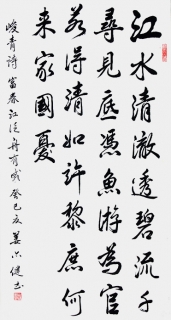 江水清澈透碧流千
尋見底憑魚游為官
若得清如許黎庶何
来家國憂
峻青詩富春江泛舟有感癸巳姜健书